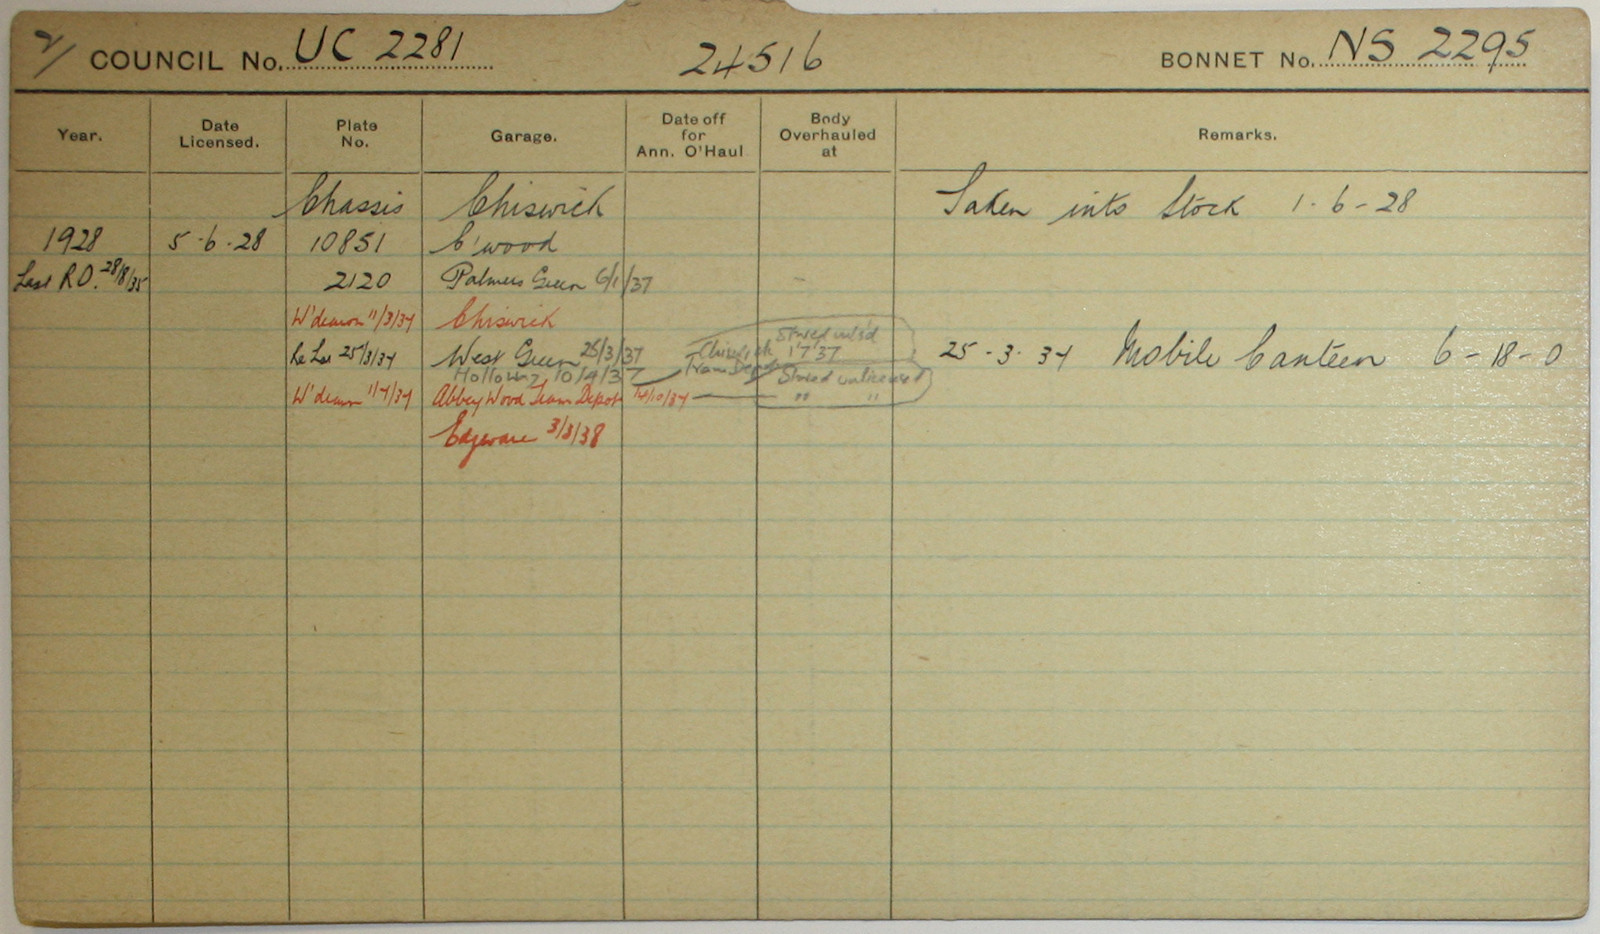 2/ COUNCIL No. UC 2281 24516 BONNET No. NS 2295
Year. Date Licensed. Plate No. Garage. Date off for Ann. O'Haul Body Overhauled at Remarks.
Chassis Chiswick Taken into Stock 1-6-28
1928 5-6-28 10851 C'wood
Last R.O. 28/8/35 2120 Palmers Green 6/1/37
W'drawn 11/3/37 Chiswick
Stored unlic'd
Re Lic 25/3/37 West Green 25/3/37 Chiswick 1737 25-3-37 Mobile Canteen 6-18-0
Holloway 10/4/37 Tram Depot Stored unlicensed
W'drawn Abbey Wood Tram Depot 14/10/37 " "
Edgware 3/3/38